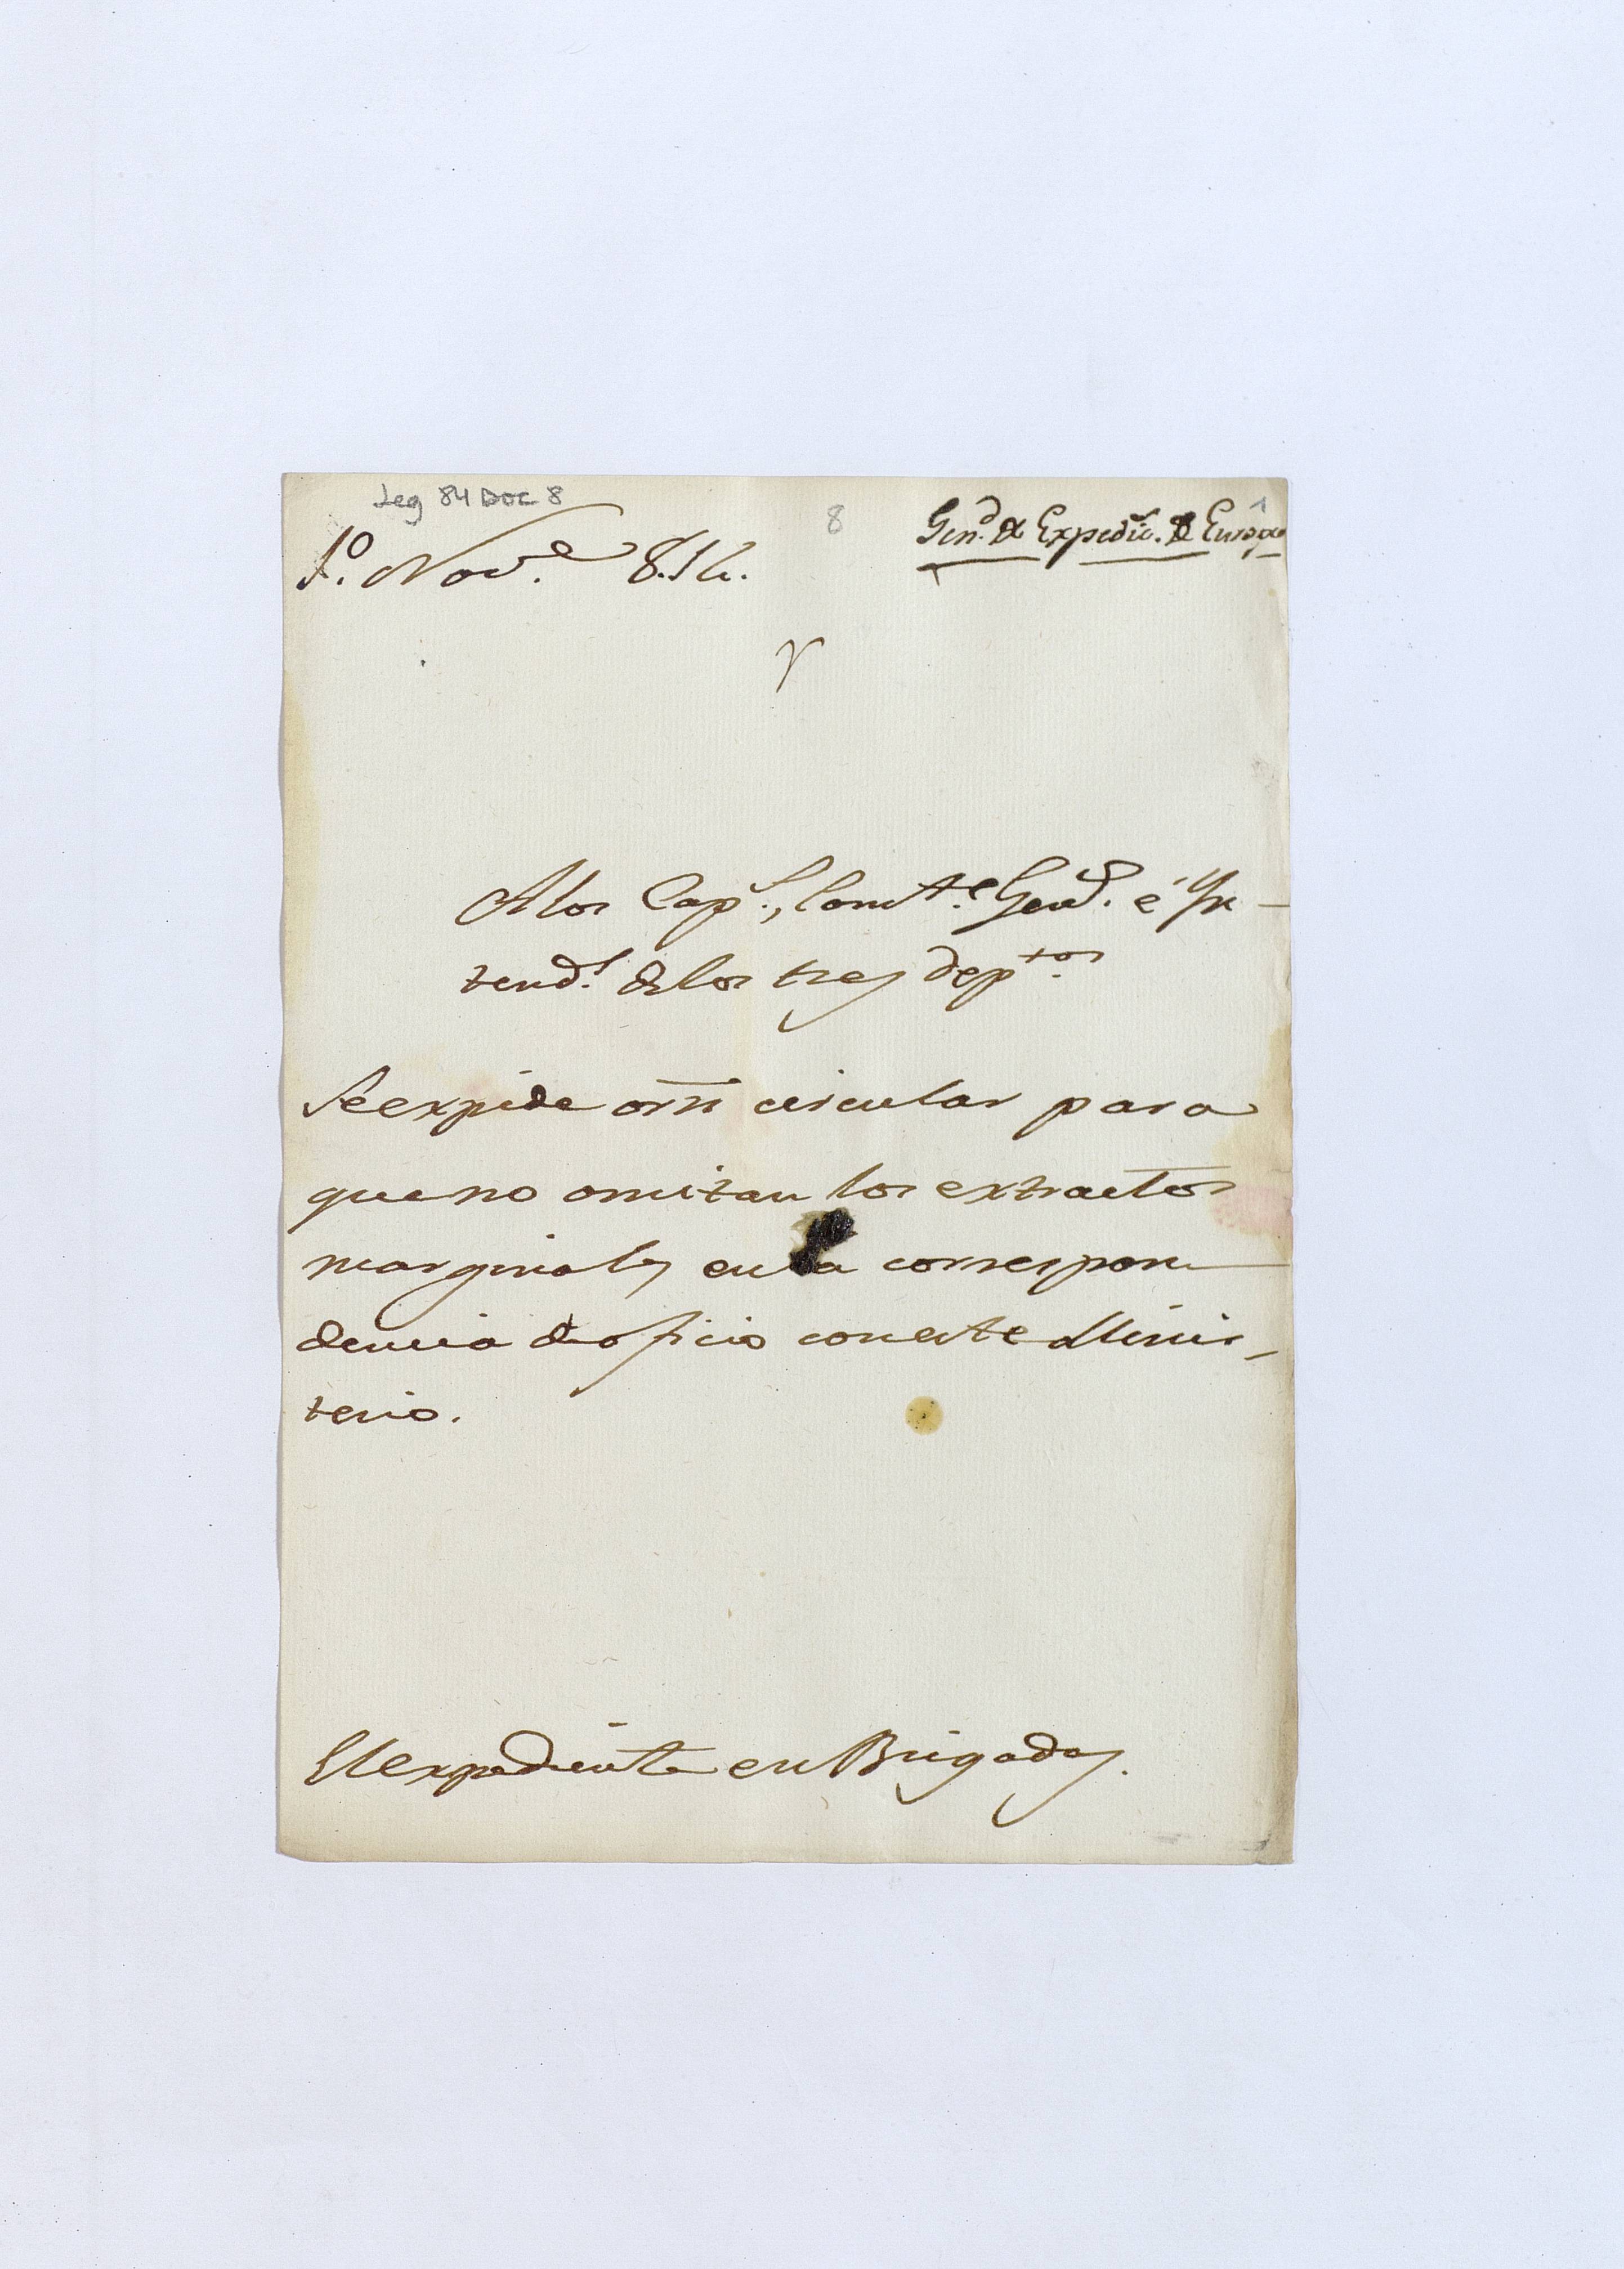 Leg 84 Doc 8
8
1
Gen.l de Expedic. de Europa
1º. Nov.e 814.
A los Cap.s, Comt.e Gen.s é Yn-
tend.s de los tres dep.tos
Se expide orn circular para
que no omitan los extractos
marginales en la correspon-
dencia de oficio con este Minis-
terio.
El expediente en Brigadas.